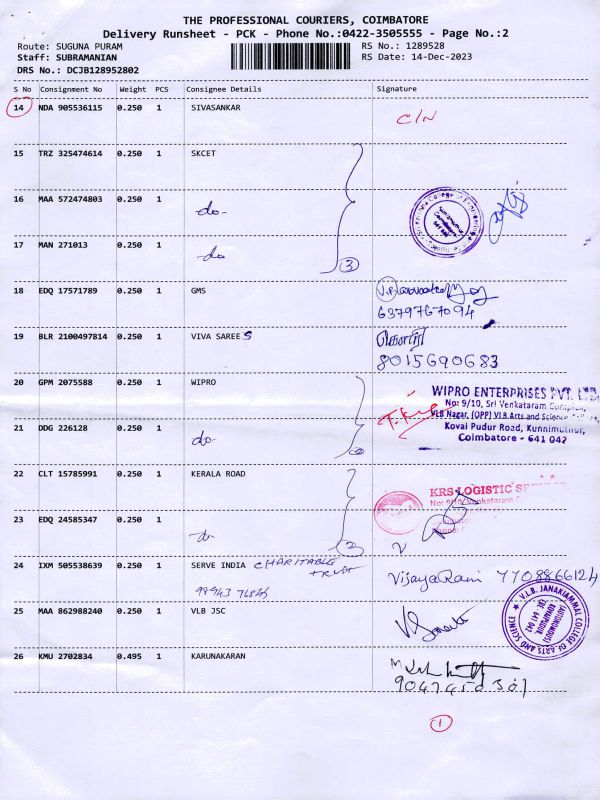 THE PROFESSIONAL COURIERS, COIMBATORE
Delivery Runsheet - PCK - Phone No.:0422-3505555 - Page No.:2
Route: SUGUNA PURAM RS No.: 1289528
Staff: SUBRAMANIAN RS Date: 14-Dec-2023
DRS No.: DCJB128952802
S No Consignment No Weight PCS Consignee Details Signature
14 NDA 905536115 0.250 1 SIVASANKAR C/N
15 TRZ 325474614 0.250 1 SKCET
16 MAA 572474803 0.250 1 do-
17 MAN 271013 0.250 1 do
3
18 EDQ 17571789 0.250 1 GMS
6379767094
19 BLR 2100497814 0.250 1 VIVA SAREES கௌரி
8015690683
20 GPM 2075588 0.250 1 WIPRO
WIPRO ENTERPRISES PVT. LTD
No: 9/10, Sri Venkataram
VLB Nagar, (OPP) VLB Arts and Science College,
Kovai Pudur Road, Kunnimuthur,
Coimbatore - 641 042
21 DDG 226128 0.250 1 do-
2
22 CLT 15785991 0.250 1 KERALA ROAD
KRS LOGISTIC
23 EDQ 24585347 0.250 1 do
2
24 IXM 505538639 0.250 1 SERVE INDIA CHARITABLE TRUST
VijayaRani 7708866124
25 MAA 862988240 0.250 1 VLB JSC
V.L.B. JANAKIAMMAL COLLEGE OF ARTS AND SCIENCE
26 KMU 2702834 0.495 1 KARUNAKARAN
9047450301
1